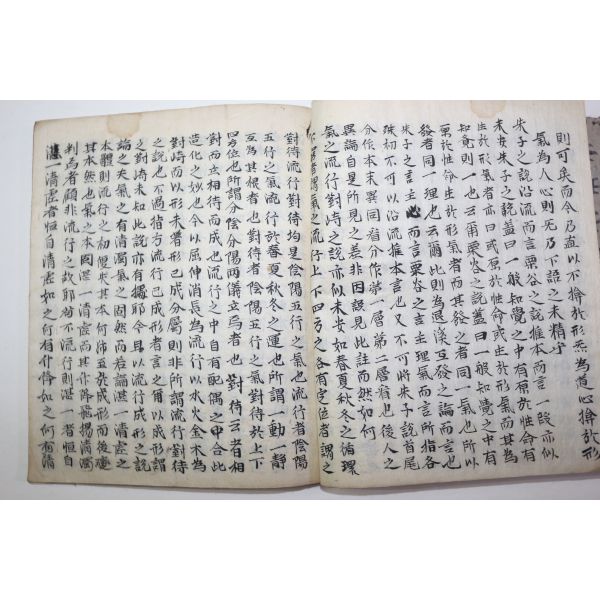 則可矣而今乃直以不掩於形炁為道心掩於形
氣為人心則无乃下語之未精乎
朱子之說沿流而言栗谷之說推本而言一段亦似
未安朱子之說蓋曰一般知覺之中有原於性命有
生於形氣者亦曰或原於性命或生於形氣而其為
知覺則一也云爾栗谷之說蓋曰一般知覺之中有
原於性命生於形氣者而其發之者同一氣也所以
發者同一理也云爾比則為退溪互發之論而言也
朱子之言主心而言栗谷之言主理氣而言所指各
殊切不可以沿流推本言也又不可將朱子說首尾
分作本末異同看分作第一層第二層看也後人之
異論自是所見之差非因誤見此註而然如何
氣之流行對峙之說亦似未安如春夏秋冬之循環
不窮者謂氣之流行上下四方之各有定位者謂之
對待流行對待均是陰陽五行之氣也流行者陰陽
五行之氣流行於春夏秋冬之運也所謂一動一靜
互為其根者也對待者陰陽五行之氣對待於上下
四方之位也所謂分陰分陽兩儀立焉者也對待云者相
對而立相待而成也流行之中自有配偶之中合此
造化之妙也今以屈伸消長為流行以水火金木為
對峙而以形未著形已成分屬則非所謂流行對待
之說也不過指方流行已成形者言之爾以成形之說
之對峙未知此說亦有據耶今且以流行成形之說
論之夫氣之有清濁氣之固然而若論湛一清虛之
本體則流行之初便失其本何待至於成形而後違
其本然也氣之本固湛一清虛而其作降飛揚清濁
判焉者顧非流行之故耶若不流行則湛一者恒自
湛一清虛者恒自清虛如之何有什倍如之何有清